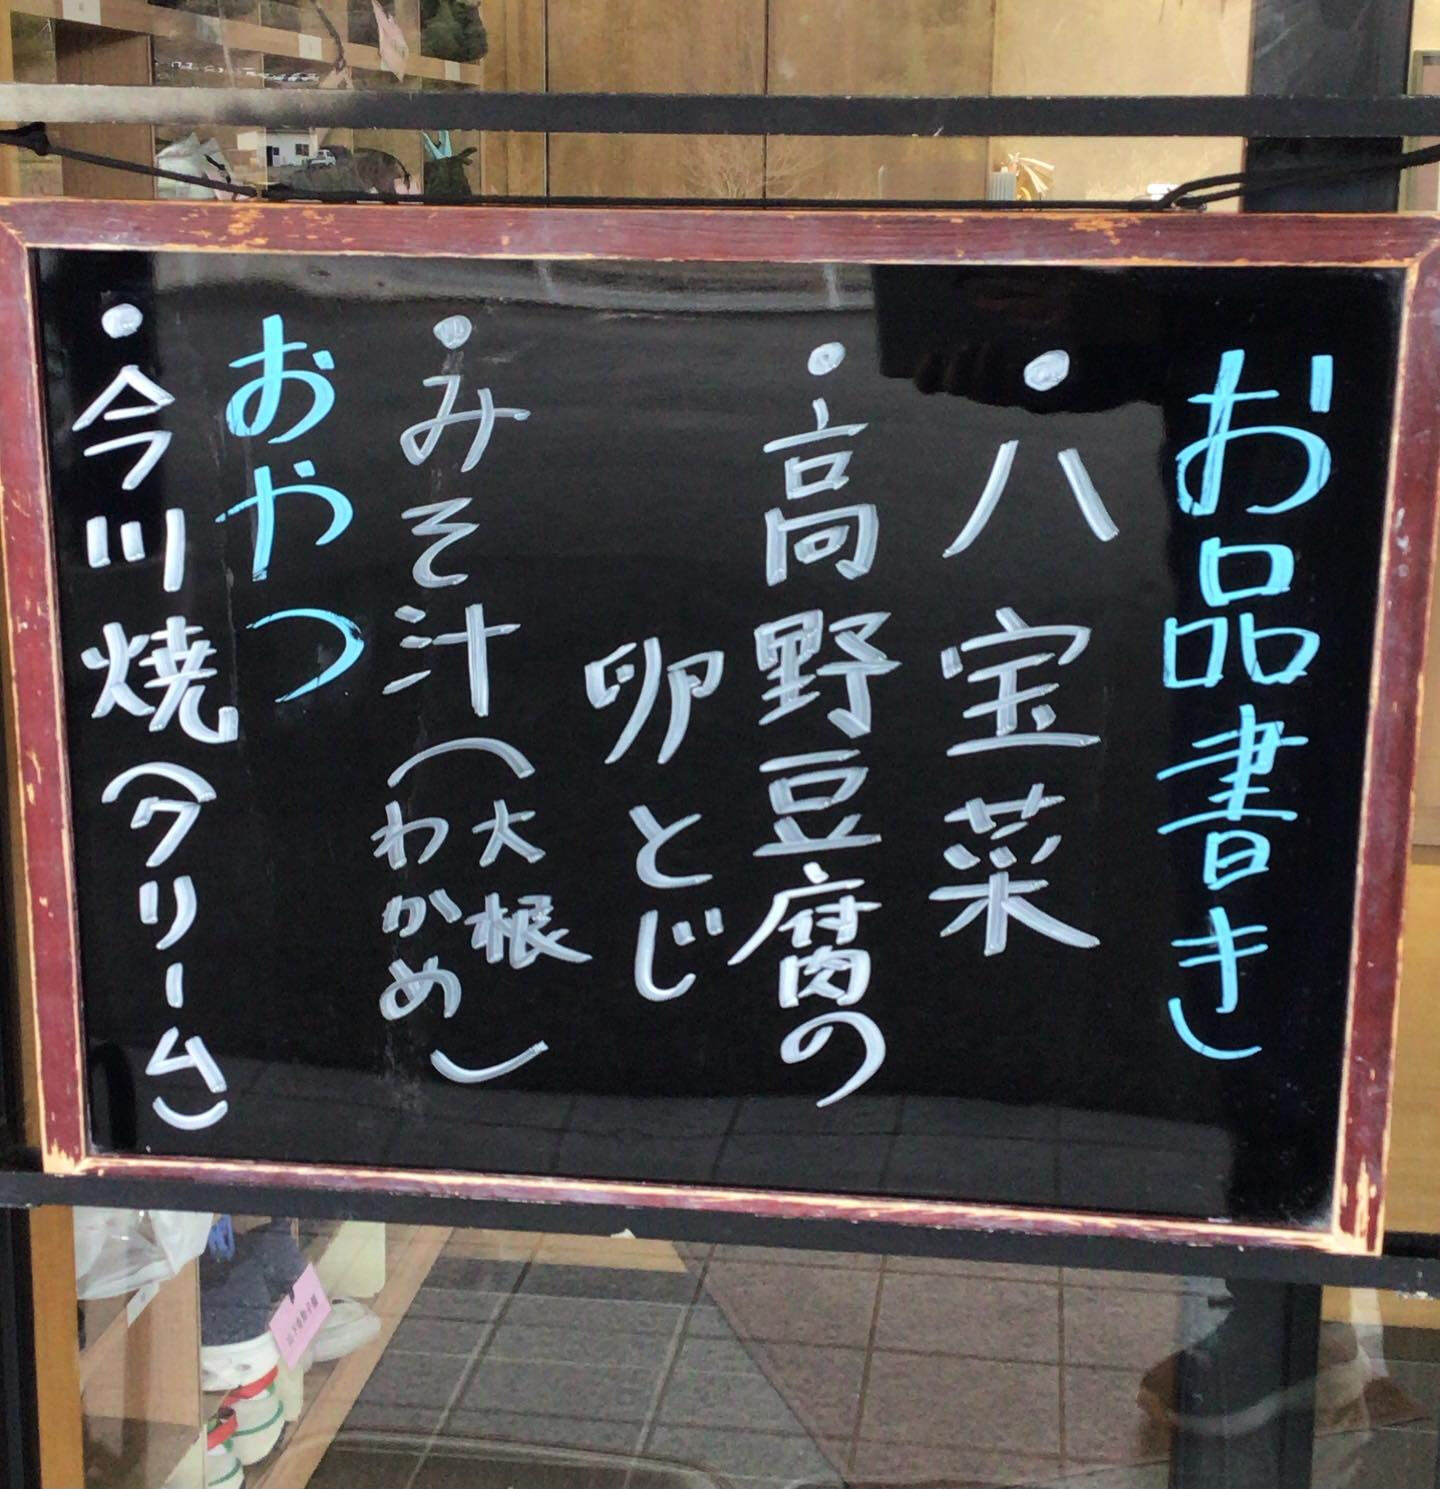 お品書き
・八宝菜
・高野豆腐の
卵とじ
・みそ汁(大根
わかめ)
おやつ
・今川焼(クリーム)